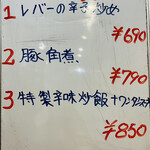 1 レバーの辛子炒め
¥690
2 豚角煮
¥790
3 特製辛味炒飯+ワンタンスープ
¥850